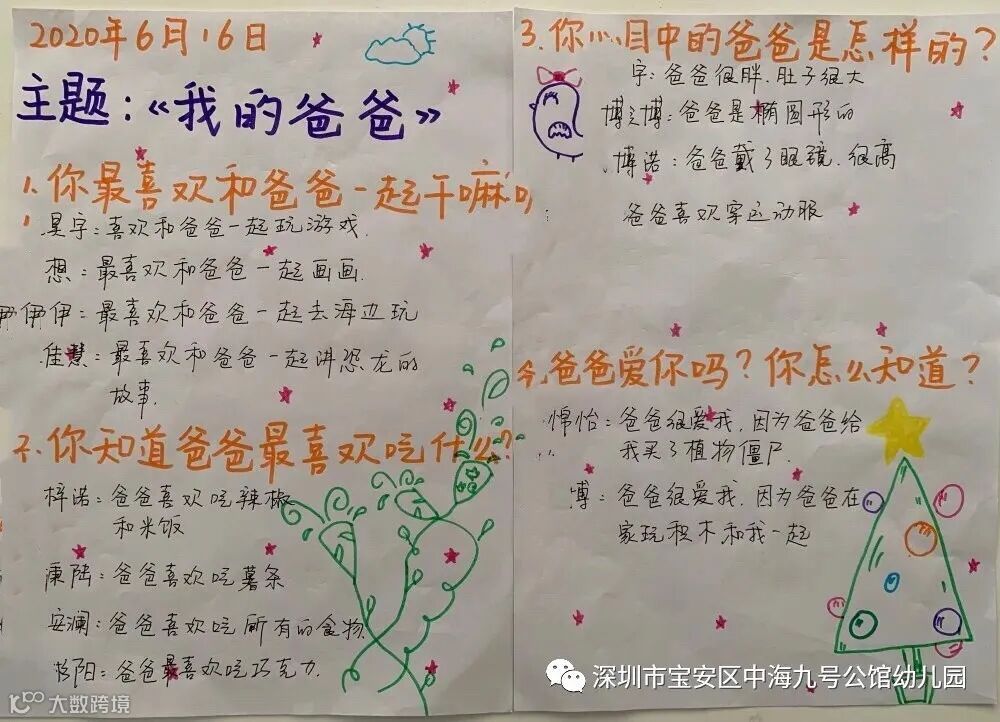 2020年6月16日
主题:《我的爸爸》
1.你最喜欢和爸爸一起干嘛
星宇:喜欢和爸爸一起玩游戏.
想:最喜欢和爸爸一起画画.
伊伊:最喜欢和爸爸一起去海边玩
佳慧:最喜欢和爸爸一起讲恐龙的
故事.
2.你知道爸爸最喜欢吃什么?
梓诺:爸爸喜欢吃辣椒
和米饭
康陆:爸爸喜欢吃薯条
安澜:爸爸喜欢吃所有的食物.
阳:爸爸最喜欢吃巧克力.
3.你心目中的爸爸是怎样的?
宇:爸爸很胖.肚子很大
博之博:爸爸是椭圆形的
博诺:爸爸戴了眼镜.很高
爸爸喜欢穿运动服
4.爸爸爱你吗?你怎么知道?
怡:爸爸很爱我,因为爸爸给
我买了植物僵尸.
博:爸爸很爱我,因为爸爸在
家玩积木和我一起
深圳市宝安区中海九号公馆幼儿园
大数跨境